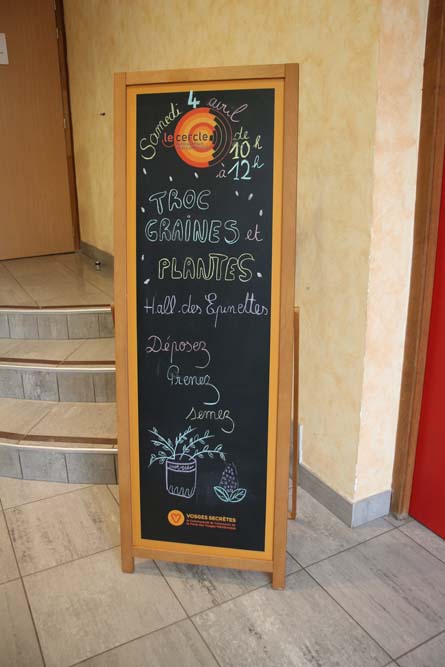 Samedi 4 avril
de
10h
à
12h
le cercle
TROC
GRAINES et
PLANTES
Hall des Epinettes
Déposez
Prenez
semez
VOSGES SECRÈTES